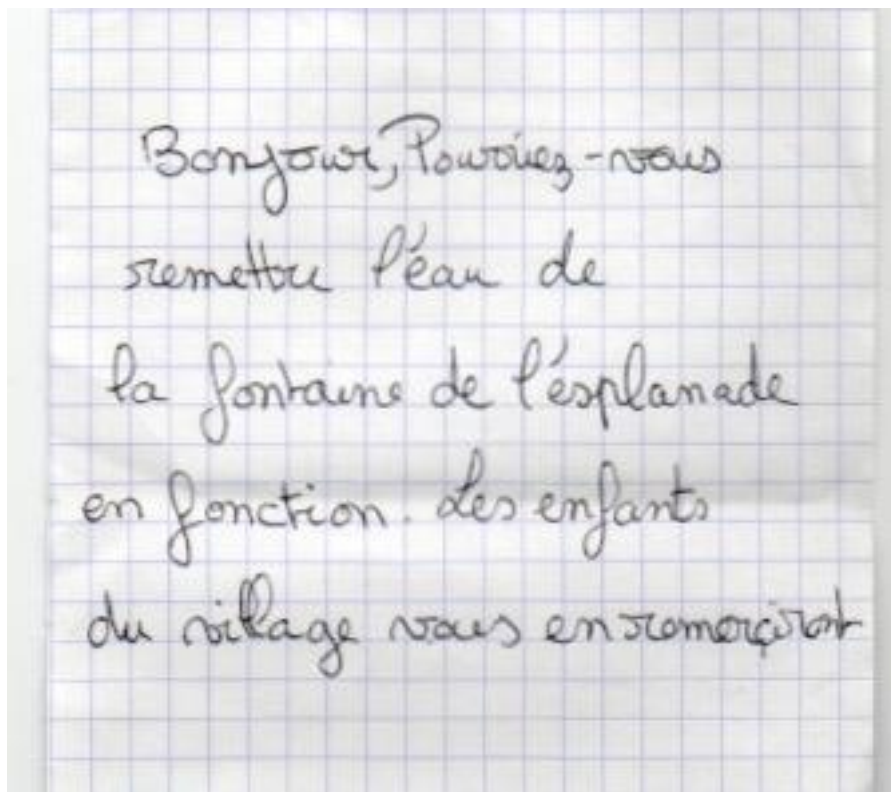 Bonjour, Pouriez-vous
remettre l'éau de
la fontaine de l'ésplanade
en fonction. Les enfants
du village vous en remerçiront